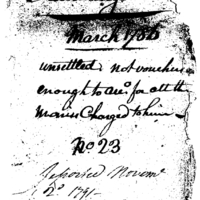 March 1786
unsettled not vouchers
enough to acco. for all the
monies Charged to him
No 23
Reported Novemr.
2d. 1791